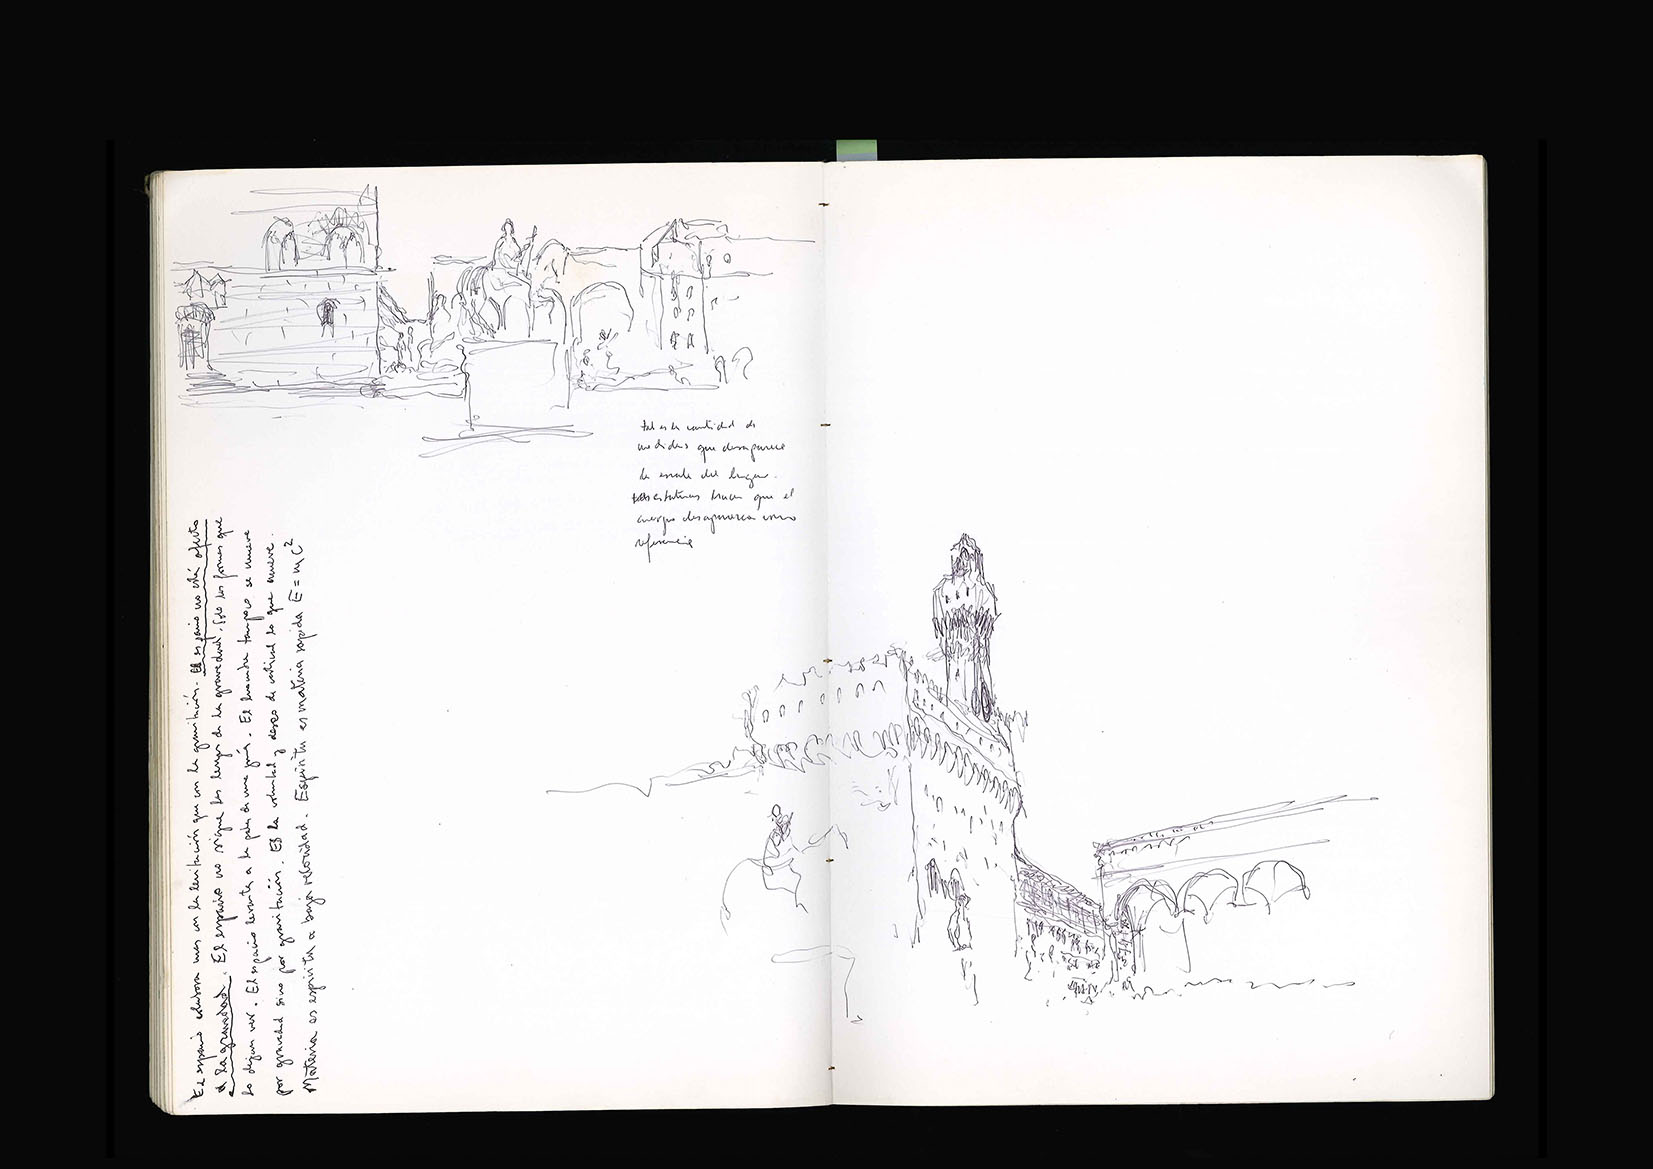 tal es la cantidad de
medidas que desaparece
la escala del lugar.
estatuas hacen que el
cuerpo desaparezca como
referencia
El espacio labora mas con la levitación que con la gravitación. El espacio no está sujeto
a la gravedad. El espacio no sigue las leyes de la gravedad. Solo las formas que
lo dejan ver. El espacio levanta a la pata de una grúa. El hombre tampoco se mueve
por gravedad sino por gravitación. Es la voluntad y deseo de vertical lo que mueve.
Materia es espíritu a baja velocidad. Espíritu es materia rapida E = mc²